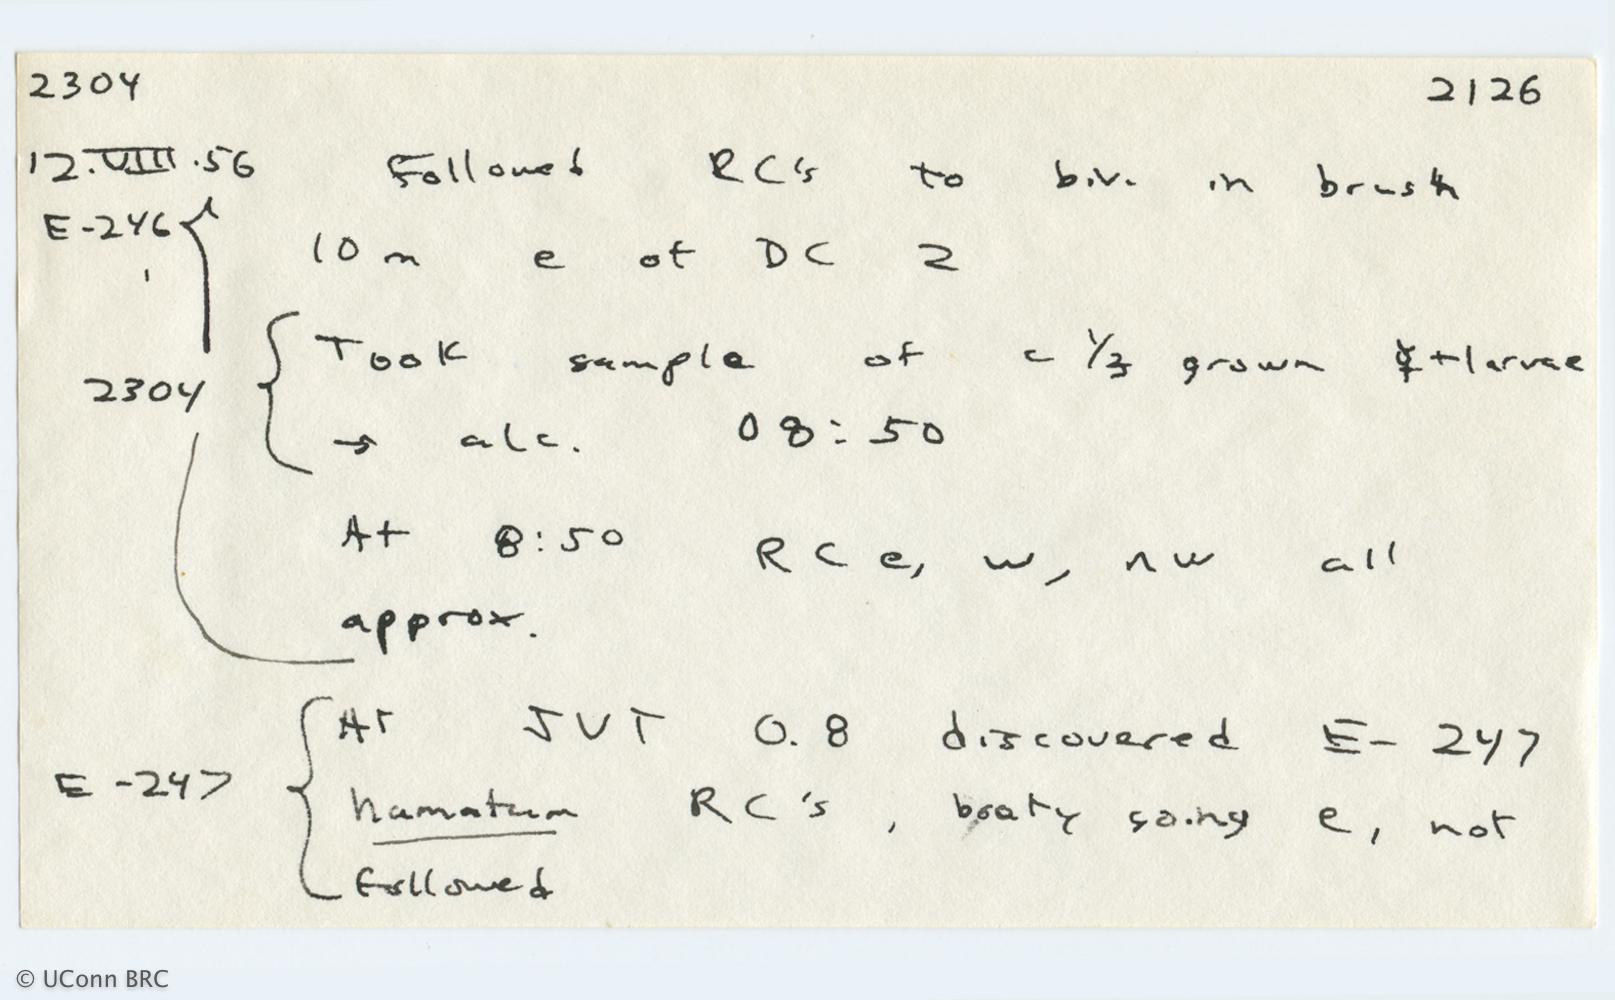 2304 2126
12.VIII.56 Followed RC's to biv. in brush
E-246 10 m e of DC 2
Took sample of c 1/3 grown ☿ + larvae
2304
→ alc. 08:50
At 8:50 RC e, w, nw all
approx.
At JVT 0.8 discovered E-247
E-247
hamatum RC's, booty going e, not
followed
© UConn BRC